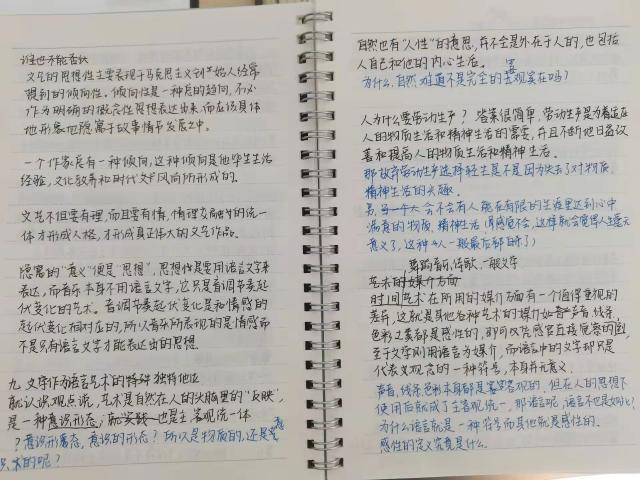 谁也不能否认
文艺的思想性主要表现于马克思主义创始人经常
提到的倾向性。倾向性是一种总的趋向，不必
作为明确的概念性思想表达出来，而应该具体
地形象地隐寓于故事情节发展之中。
一个作家总有一种倾向，这种倾向是他毕生生活
经验，文化教养和时代文艺风向所形成的。
文艺不但要有理，而且要有情，情理交融的统一
体才形成人格，才形成真正伟大的文艺作品。
隐寓的“意义”便是“思想”，思想性是要用语言文字来
表达，而音乐本身不用语言文字，它只是音调节奏起
伏变化的艺术。音调节奏起伏变化是和情感的
起伏变化相对应的，所以音乐所表现的是情感而
不是只有语言文字才能表达出的思想。
九 文学作为语言艺术的特殊 独特地位
就认识观点说，艺术是自然在人的头脑里的“反映”，
是一种意识形态；就实践 也是主客观统一体
？意识形态，意识的形态？所以是物质的，还是意
识的呢？
自然也有“人性”的意思，并不全是外在于人的，也包括
人自己和他的内心生活。
为什么，自然难道不是完全的客观实在吗？
人为什么要劳动生产？答案很简单，劳动生产是为着适应
人的物质生活和精神生活的需要，并且不断地日益改
善和提高人的物质生活和精神生活。
那放弃劳动生产选择轻生是不是因为失去了对物质、
精神生活的兴趣。
另，会不会有人能在有限的生命里达到心中
满意的物质、精神生活（有感觉不会，这样就会觉得人生无
意义了，这种人一般最后都
舞蹈音乐，诗歌，一般文字
艺术的媒介方面
时间艺术在所用的媒介方面有一个值得重视的
差异，这就是其他各种艺术的媒介如声音，线条，
色彩之类都是感性的，即可凭感官直接觉察的，
至于文学则用语言为媒介，而语言中的文字却只是
代表观念的一种符号，本身并无意义。
声音，线条，色彩本身都是客观的，但在人的思想下
使用后就成了主客观统一。那语言呢，语言不也如此？
为什么语言就是一种符号而其他就是感性的。
感性的定义究竟是什么。